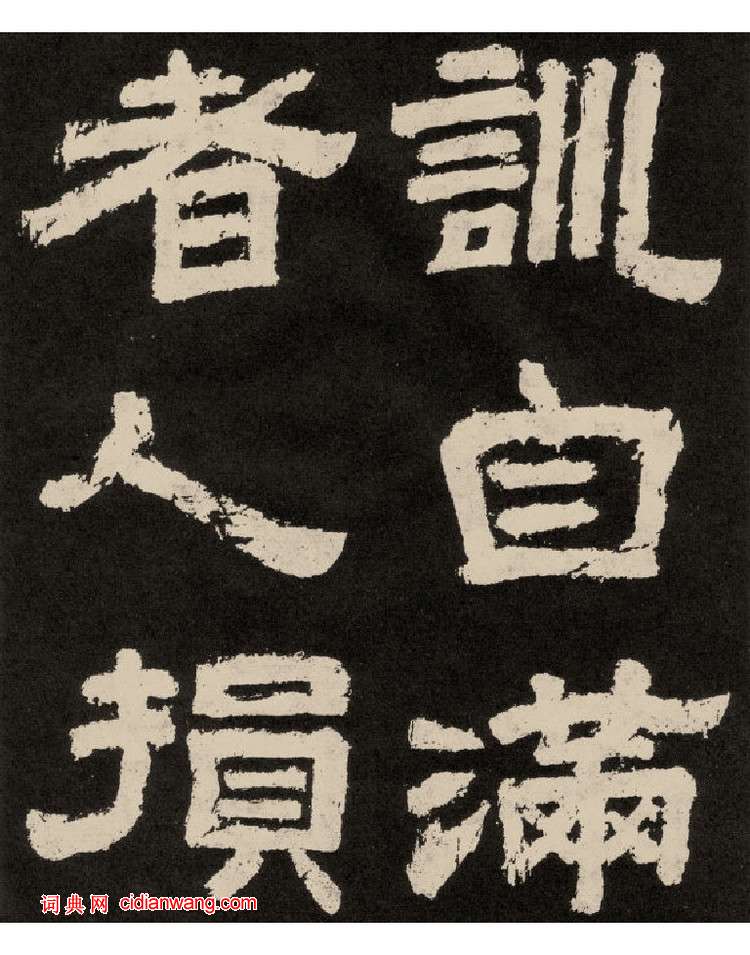 訓自滿
者人損
词典网 cidianwang.com